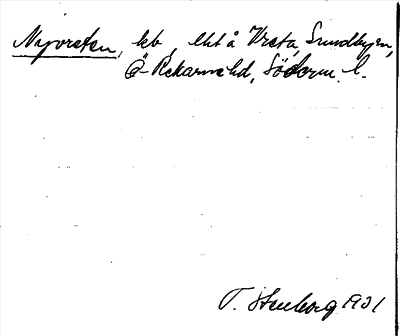 Nyvreten, kb, eht å Vreta, Sundbyn,
Ö-Rekarne hd, Söderm. l.
T. Stenborg 1931